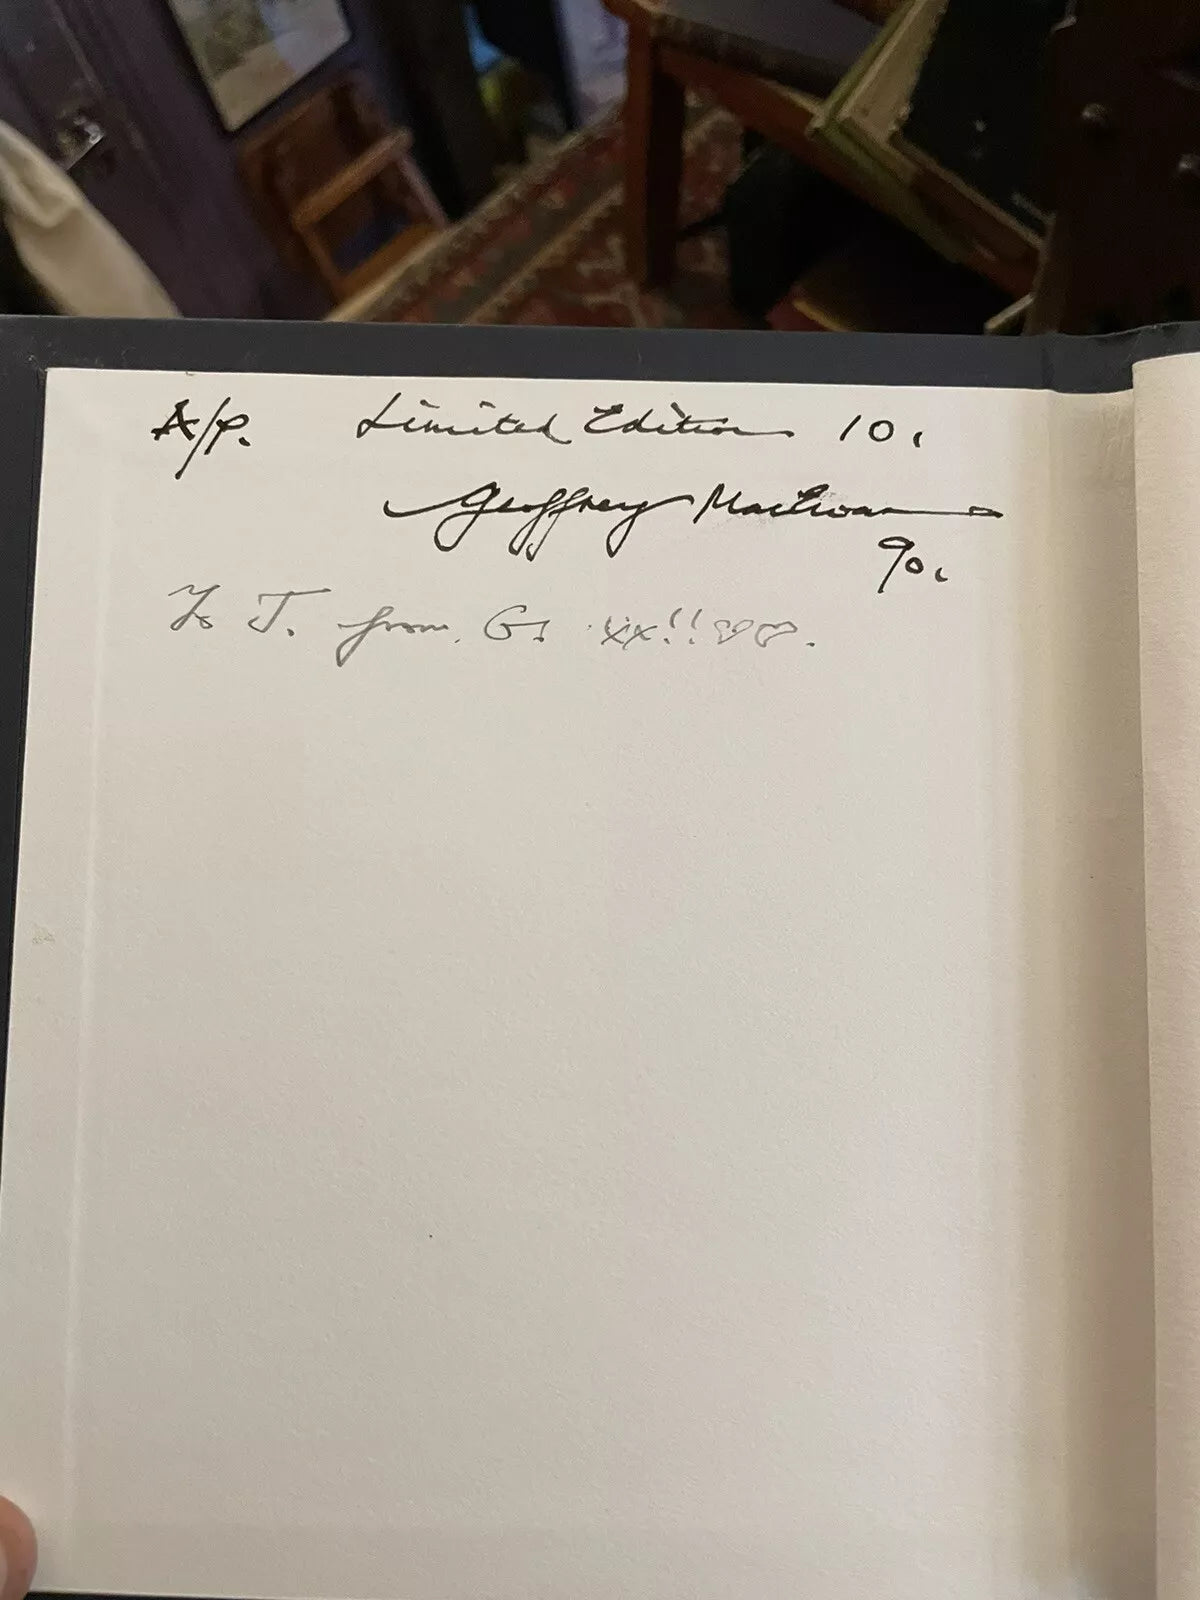 A/P. Limited Edition 10.
Geoffrey MacEwan
90.
To J. from G. xx!!♡♡.